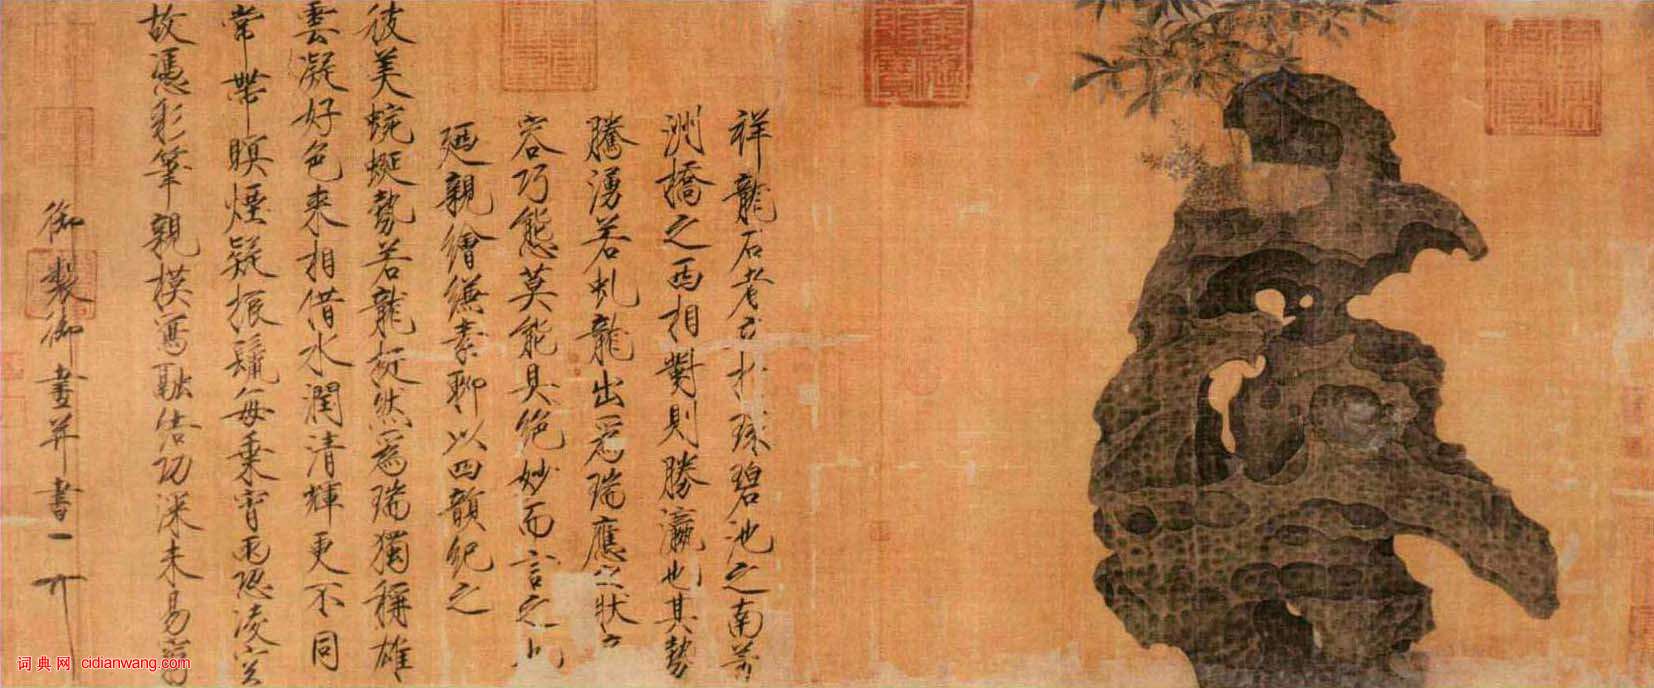 祥龍石者立於環碧池之南芳
洲橋之西相對則勝瀛也其勢
騰湧若虬龍出為瑞應之狀奇
容巧態莫能具絕妙而言之也
廼親繪縑素聊以四韻紀之
彼美蜿蜒勢若龍挺然為瑞獨稱雄
雲凝好色來相借水潤清輝更不同
常帶暝煙疑振鬣每乘宵雨恐凌空
故憑彩筆親模寫融結功深未易窮
御製御畫并書
词典网 cidianwang.com